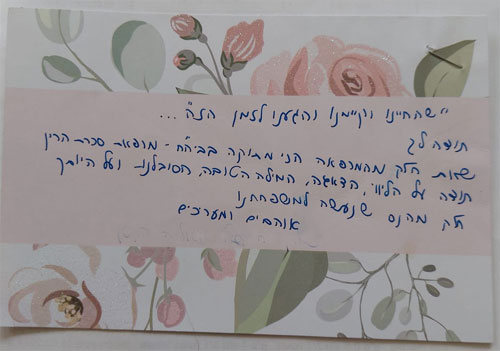 "שהחיינו וקיימנו והגענו לזמן הזה"...
תודה לך
שאת חלק מהמרפאה הכי מתוקה בביה"ח - מרפאת סכרת הריון
תודה על הליווי, הדאגה, המילה הטובה, הסובלנות ועל היותך
חלק מהנס שנעשה למשפחתנו
אוהבים ומעריכים